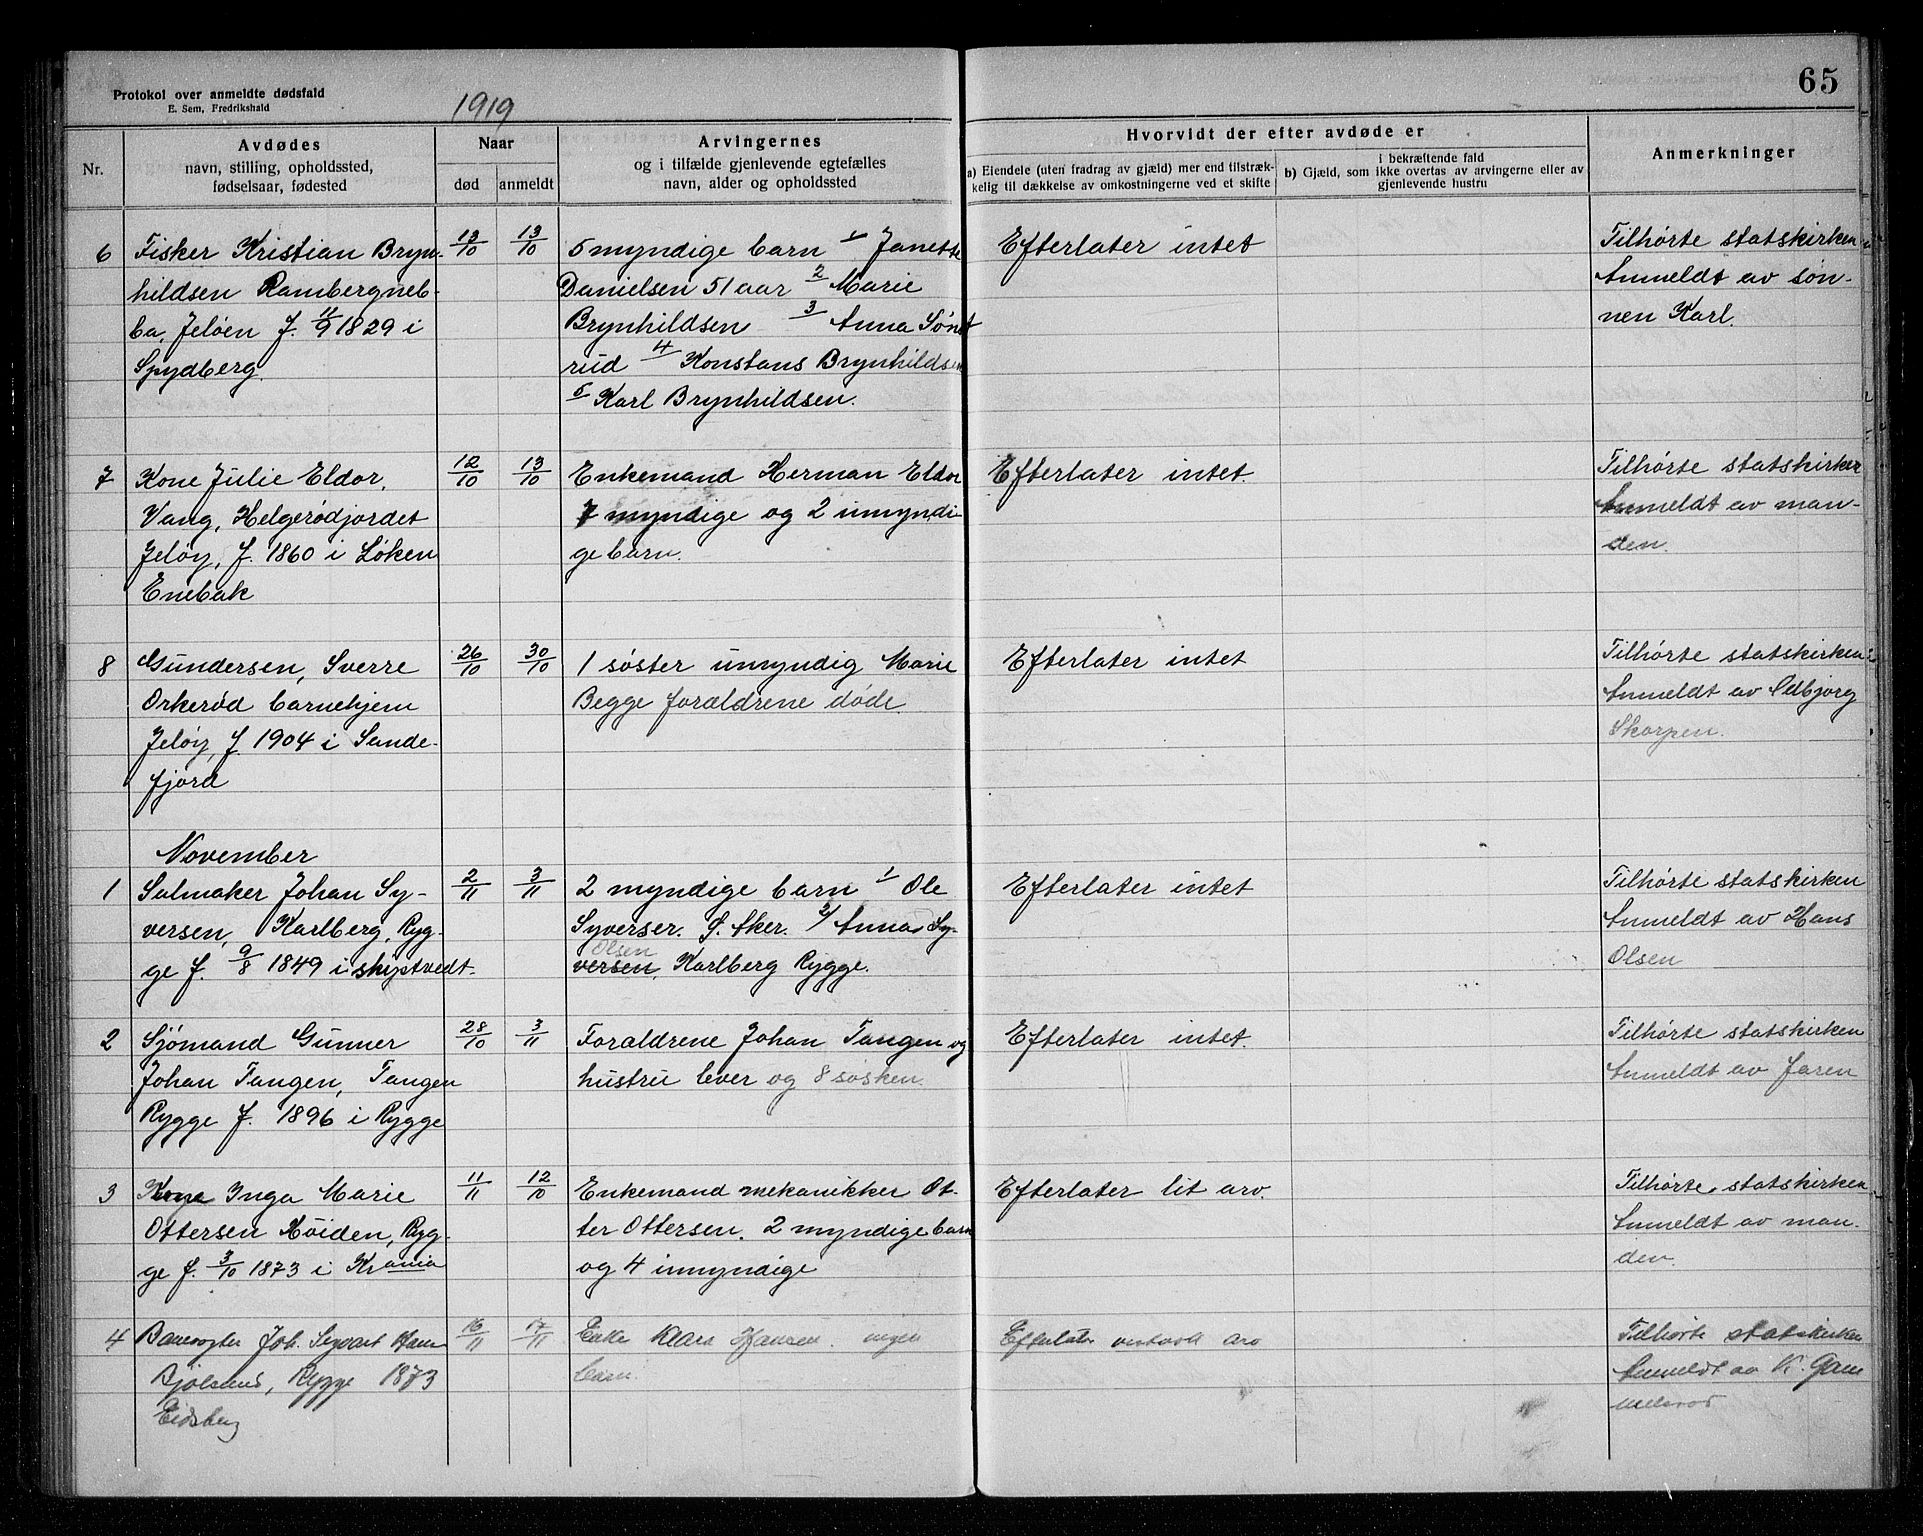 65
Protokol over anmeldte dødsfald
E. Sem, Fredrikshald
1919
Nr.
Avdødes
navn, stilling, opholdssted,
fødselsaar, fødested
Naar
død
anmeldt
Arvingernes
og i tilfælde gjenlevende egtefælles
navn, alder og opholdssted
Hvorvidt der efter avdøde er
a) Eiendele (uten fradrag av gjæld) mer end tilstræk-
kelig til dækkelse av omkostningerne ved et skifte
i bekræftende fald
b) Gjæld, som ikke overtas av arvingerne eller av
gjenlevende hustru
Anmerkninger
6
Fisker Kristian Bryn-
hildsen Rambergneb-
ba, Jeløen f. 11/9 1829 i
Spydberg.
13/10
13/10
5 myndige barn 1/ Janette
Danielsen 51 aar 2/ Marie
Brynhildsen 3/ Anna Sønst
rud 4/ Konstans Brynhildsen
5/ Karl Brynhildsen.
Efterlater intet
Tilhørte statskirken
Anmeldt av søn-
nen Karl.
7
Kone Julie Eldor,
Vang, Helgerødjordet
Jeløy, f. 1860 i Løken
Enebak
12/10
13/10
Enkemand Herman Eldor
7 myndige og 2 umyndi
ge barn.
Efterlater intet.
Tilhørte statskirken
Anmeldt av man-
den.
8
Gundersen, Sverre
Orkerød barnehjem
Jeløy, f 1904 i Sande-
fjord
26/10
30/10
1 søster umyndig Marie
Begge forældrene døde.
Efterlater intet
Tilhørte statskirken
Anmeldt av Odbjørg
Skorpen.
November
1
Salmaker Johan Sy-
versen, Karlberg, Ryg-
ge f. 9/8 1849 i skiptvedt.
2/11
3/11
2 myndige barn 1/ Ole
Syversen. Ø. Aker. 2/ Anna Sy-
Olsen
versen, Karlberg Rygge.
Efterlater intet
Tilhørte statskirken
Anmeldt av Hans
Olsen
2
Sjømand Gunner
Johan Tangen, Tangen
Rygge f. 1896 i Rygge
28/10
3/11
Forældrene Johan Tangen og
hustru lever og 8 søsken.
Efterlater intet.
Tilhørte statskirken
Anmeldt av faren
3
Kone Inga Marie
Ottersen Høiden, Ryg-
ge f. 3/10 1873 i Krania
11/11
12/10
Enkemand mekanikker Ot-
ter Ottersen. 2 myndige barn
og 4 umyndige
Efterlater lit arv.
Tilhørte statskirken
Anmeldt av man-
den.
4
Banevogter Joh. Sigvart Han
Rygge 1873
Eidsberg
16/11
17/11
Enke Klara Hansen. ingen
barn.
Efterlater arv
Tilhørte statskirken
Anmeldt av K. Gam
melsrød